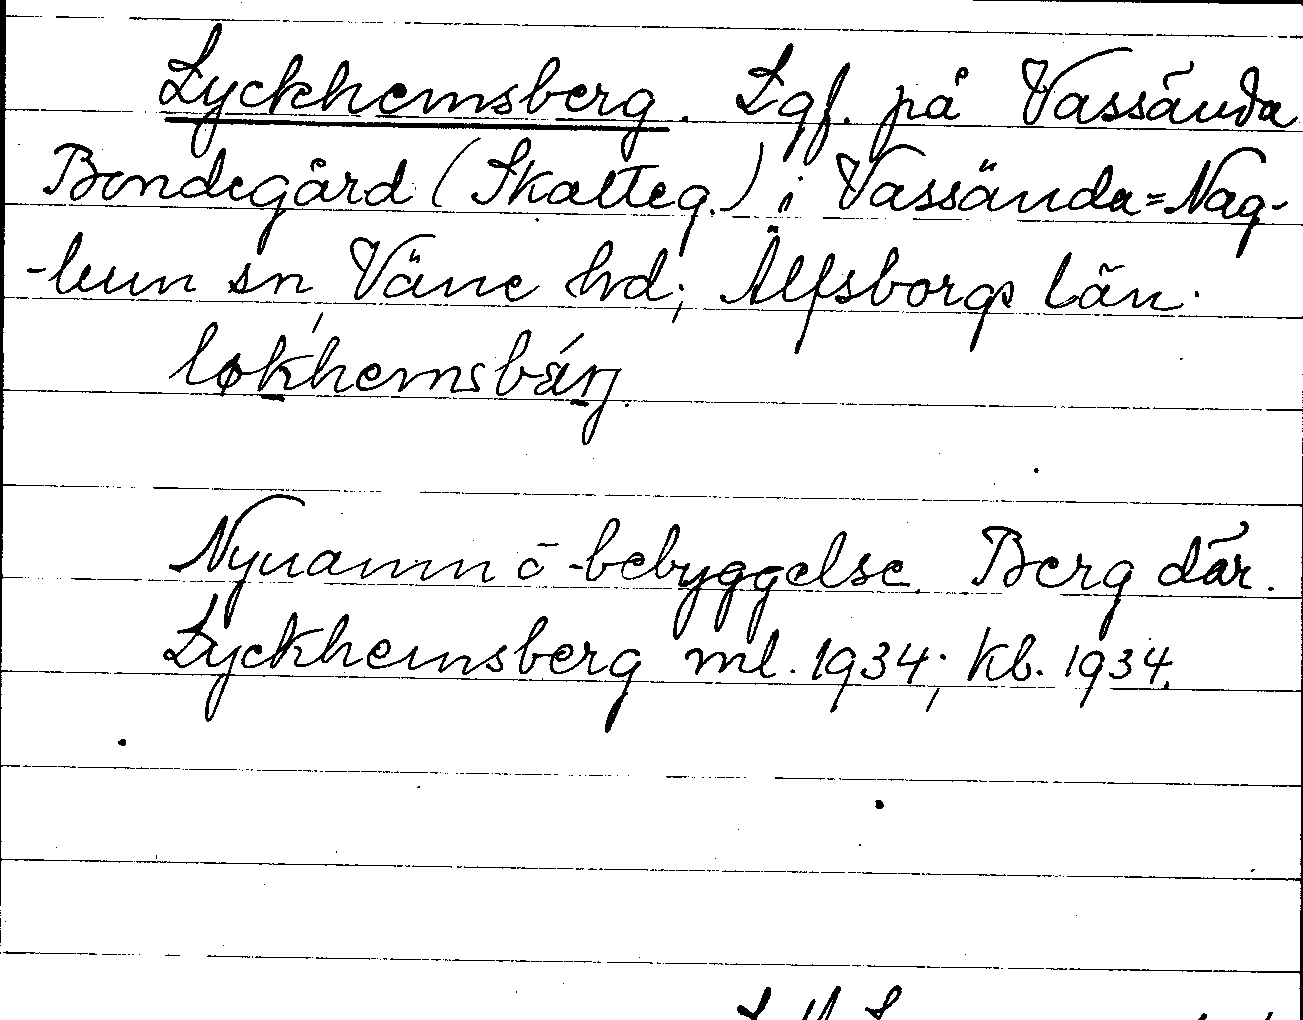 Lyckhemsberg. Lgf. på Vassända
Bondegård (Skatteg.) i Vassända=Nag-
-lum sn, Väne hd; Älfsborgs län.
løkhemsbárj.
Nynamn o -bebyggelse. Berg där.
Lyckhemsberg ml. 1934; Kb. 1934.